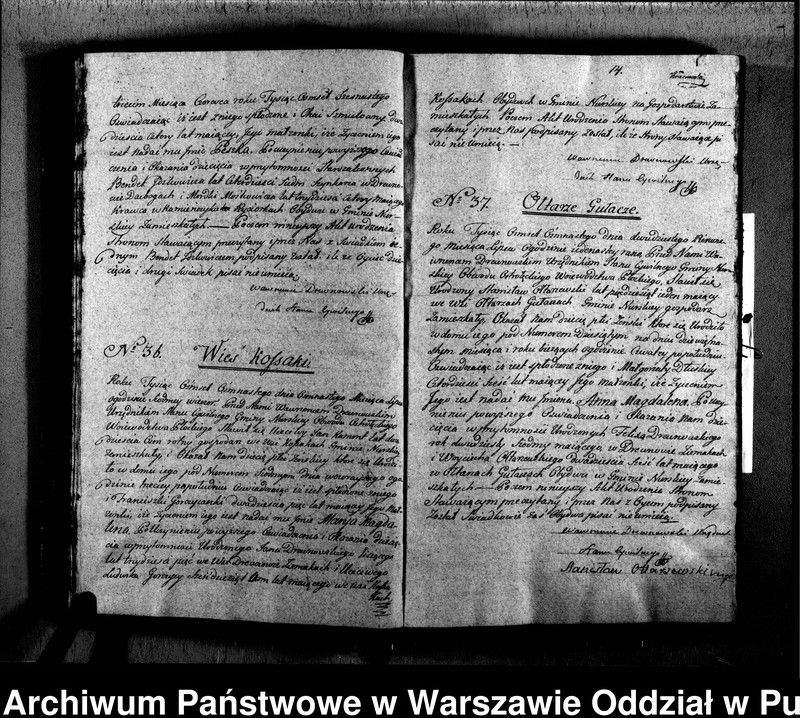 trzecim Miesiąca Czerwca roku Tysiąc Osmset Szesnastego
Oświadczając iż jest z niego spłodzone i Chai Szmulowny dwa
dziescia cztery lat maiący, Jego małżonki, iże Życzeniem iego
iest nadać mu Jmie Peszka. Po uczynieniu powyższego Oświad
czenia i Okazania dziecięcia w przytomności Starozakonnych
Bendet Joskowicza lat Czterdzieści Siedm Szynkarza w Drewno
wie Dacbogach i Mordki Moskowicza lat trzydzieści cztery maiącego
Krawca w Kamieńczyku Ryciorkach Obydwóch w Gminie Nur
skiey Zamieszkałych — Poczem ninieyszy Akt urodzenia
Stronom Stawaiącym przeczytany i przez Nas z Swiadkiem ie
dnym Bendet Joskowiczem podpisany został, ile że Oyciec dzie
cięcia i drugi Swiadek pisać nie umieią
Wawrzeniec Drewnowski Urzę-
dnik Stanu Cywilnego
No. 36. Wieś Kossaki.
Roku Tysiąc Osmset Osmnastego dnia Osmnastego Miesiąca Lipca
Ogodzinie siodmey wieczor. Przed Nami Wawrzeńcem Drewnowskim
Urzędnikiem Stanu Cywilnego Gminy Nurskiey Obwodu Ostrołęckiego
Woiewodztwa Płockiego Stawił się Uczciwy Jan lat dwa
dziescia Osm rolny gospodarz w Wsi Kossakach Gminie Nurskiey
zamieszkały, i Okazał Nam dziecię płci Zeńskiey które się Urodzi
ło w domu iego pod Numerem Siodmym dnia wczorayszego ogo
dzinie trzeciey popołudniu Oświadczaiąc iż iest spłodzone z niego
i Franciszki Gorczycanki dwadzieścia pięć lat maiący Jego Mał
żonki, iże Życzeniem iego iest nadać mu Jmie Maryia Magda
lena. Po Uczynieniu powyższego Oświadczenia i Okazania dziecię
cia w przytomności Urodzonego Jana Drewnowskiego Liczącego
lat trzydzieści pięć we Wsi Drewnowie Ziemakach i Uczciwego
Ludwika Gorczycy Sześćdziesiąt Osm lat maiącego we wsi
14.
Kossakach Obydwóch w Gminie Nurskiey na Gospodarstwie Za
mieszkałych Poczem Akt Urodzenia Stronom Stawaiącym prze
czytany i przez Nas podpisany został, ile że Strony Stawaiące pi
sać nie umieią. —
Wawrzeniec Drewnowski Urzę-
dnik Stanu Cywilnego
No. 37. Ołtarze Gułacze.
Roku Tysiąc Osmset Osmnastego dnia dwudziestego Pierwsze
go Miesiąca Lipca Ogodzinie iedenastey rano, Przed Nami Wa
wrzeńcem Drewnowskim Urzędnikiem Stanu Cywilnego Gminy Nur
skiey Obwodu Ostrołęckiego Woiewodztwa Płockiego, Stawił się
Urodzony Stanisław Ołtarzewski lat pięćdziesiąt ieden maiący
we Wsi Ołtarzach Gułaczach Gminie Nurskiey gospodarz
Zamieszkały, Okazał Nam dziecię płci Zeńskiey które się Urodziło
w domu iego pod Numerem Dziesiątym na dniu dziewiętna
stym miesiąca i roku bieżących ogodzinie Czwartey popołudniu
Oświadczaiąc iż iest spłodzone z niego i Małgorzaty
Czterdzieści Sześć lat maiący Jego Małżonki, iże Życzeniem
Jego iest nadać mu Jmiona Anna Magdalena, Po Uczy
nieniu powyższego Oświadczenia i Okazania Nam dzie
cięcia w przytomności Urodzonych Felixa Drewnowskiego
rok dwudziesty Siodmy maiącego w Drewnowie Ziemakach
i Woyciecha Ołtarzewskiego Dwadzieścia Sześć lat maiącego
w Ołtarzach Gułaczach Obydwa w Gminie Nurskiey Zamie
szkałych — Poczem ninieyszy Akt Urodzenia Stronom
Stawaiącym przeczytany i przez Nas z Oycem podpisany
Został Swiadkowie zaś Obydwa pisać nie umieią
Wawrzeniec Drewnowski Urzędnik
Stanu Cywilnego
Stanisław Ołtarzewski
Archiwum Państwowe w Warszawie Oddział w Pu